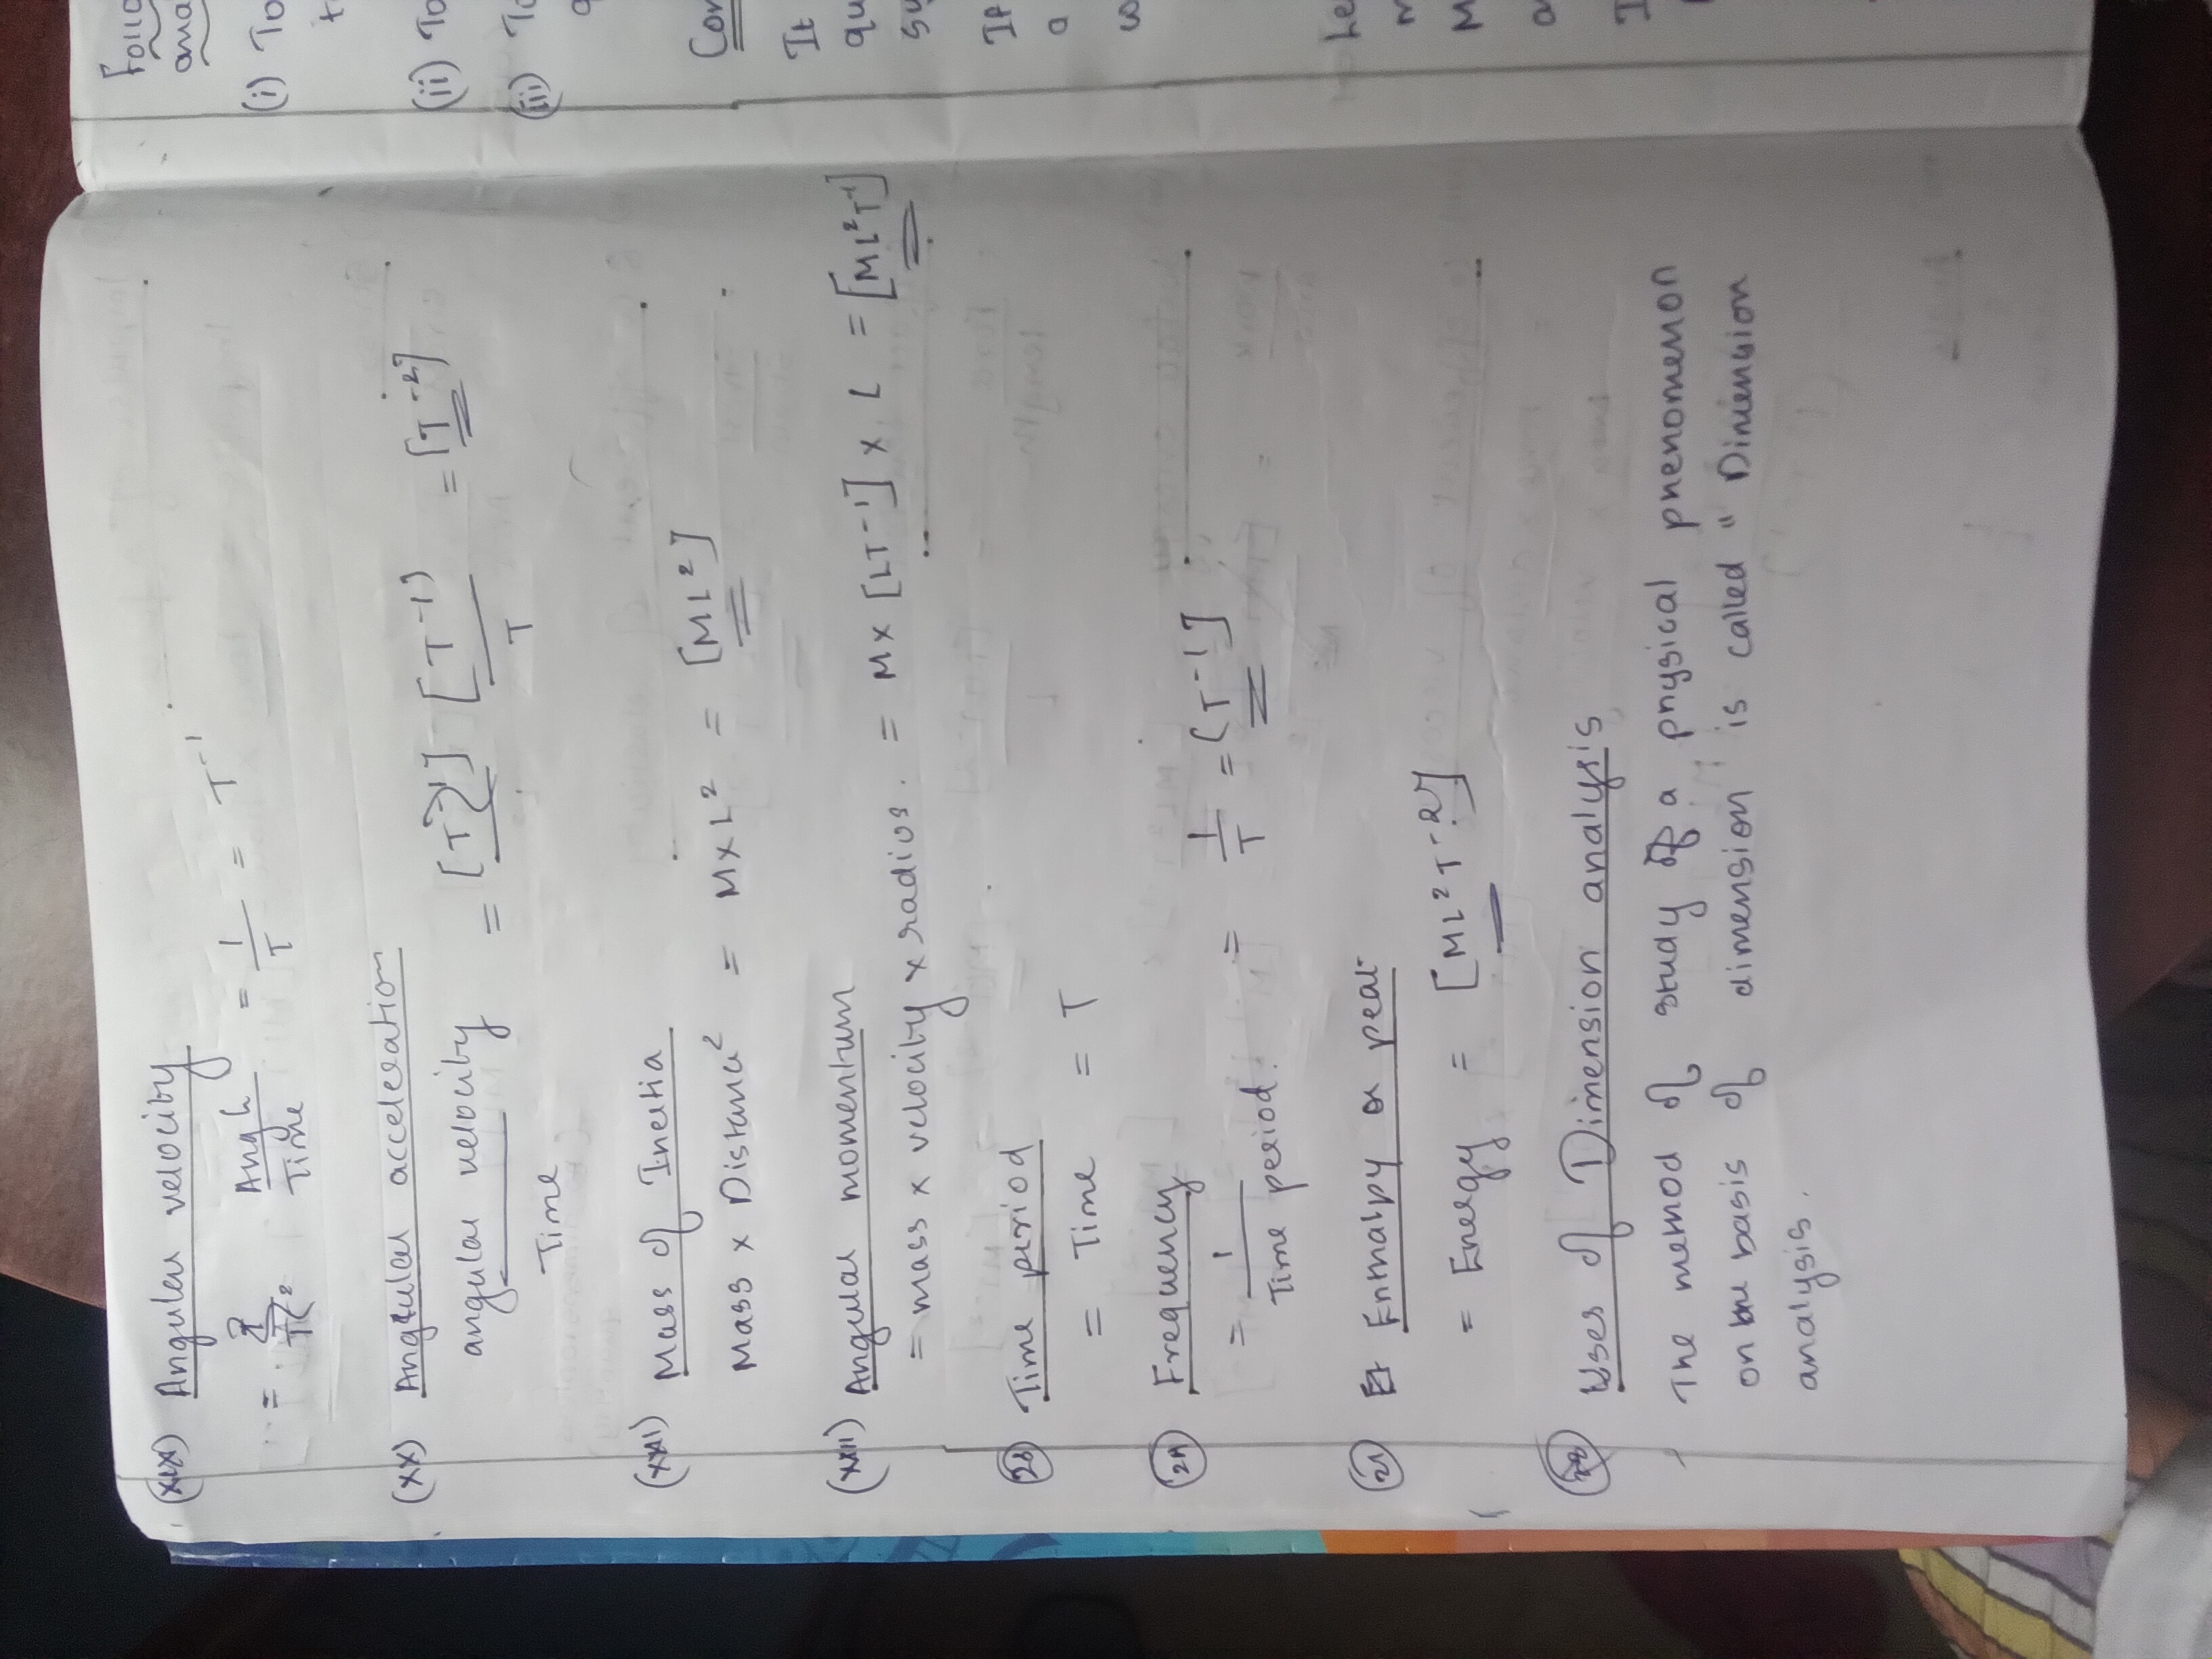 (xix) Angular velocity
= Angle / Time = 1/T = T⁻¹
(xx) Angular acceleration
angular velocity / Time = [T⁻¹] / T = [T⁻²]
(xxi) Mass of Inertia
Mass x Distance² = M x L² = [ML²]
(xxii) Angular momentum
= mass x velocity x radius. = M x [LT⁻¹] x L = [ML²T⁻¹]
23 Time period
= Time = T
24 Frequency
= 1 / Time period. = 1/T = [T⁻¹]
25 Enthalpy or heat
= Energy = [ML²T⁻²]
Uses of Dimension analysis
The method of study of a physical phenomenon
on the basis of dimension is called " Dimension
analysis.
(i) To
(ii) To
(iii) To
It
qu
It
a
w
Le
M
a
I